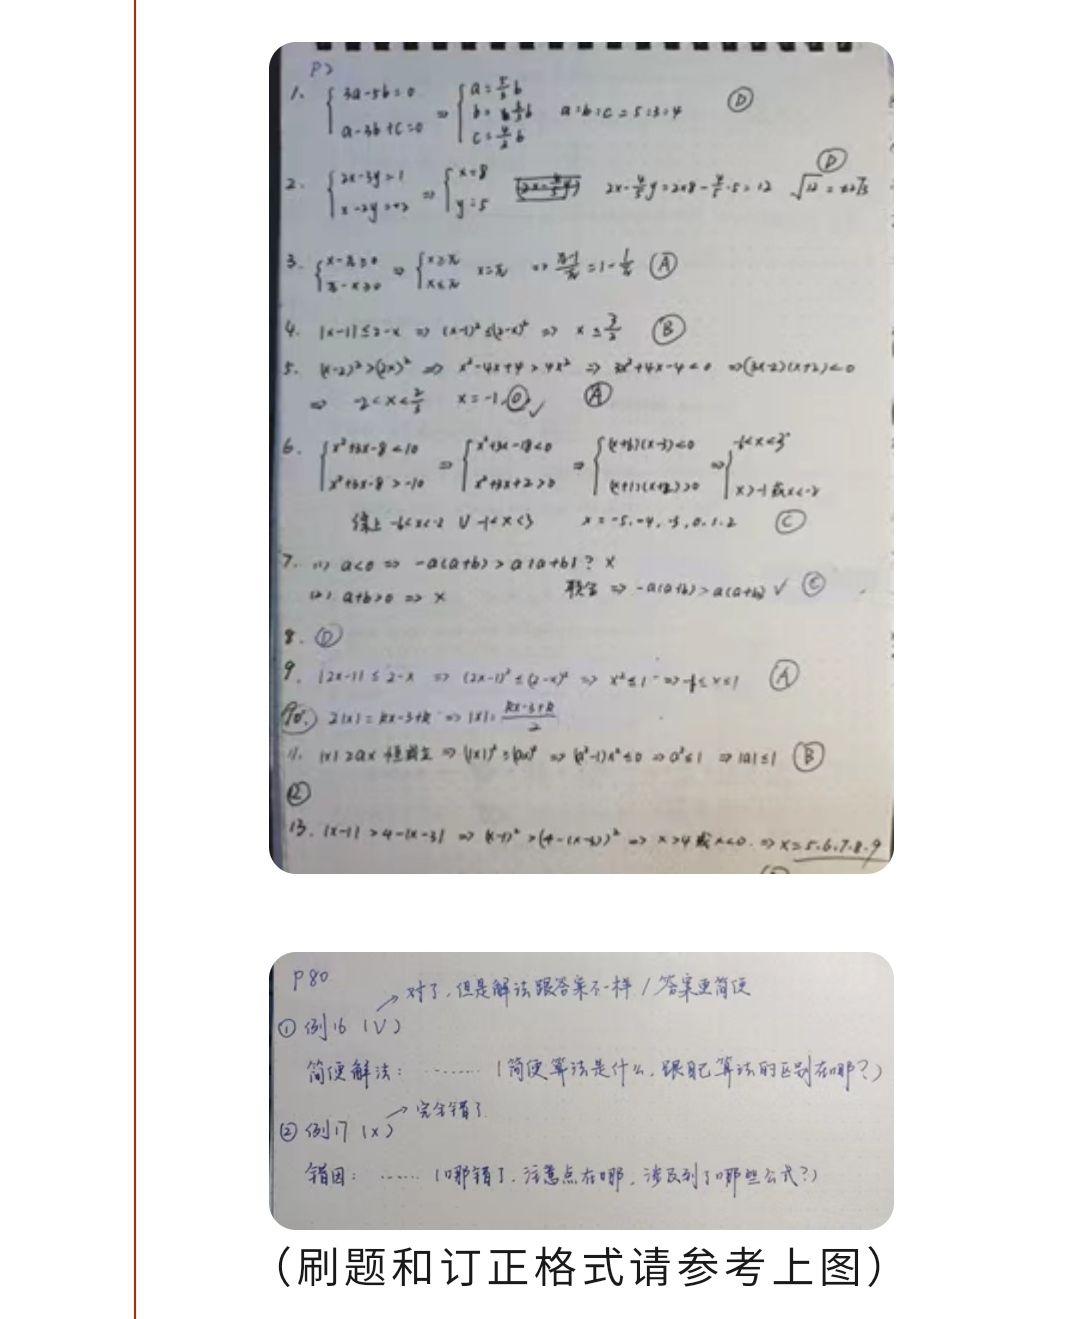 P2
1. { 3a-5b=0 a-3b+c=0 ⇒ { a=5/3b b= c=4/3b a:b:c=5:3:4 Ⓓ
2. { 2x-3y=1 x-2y=-2 ⇒ { x=8 y=5 2x-4/5y=2×8-4/5·5=12 √12=±2√3 Ⓓ
3. { x-π≥0 π-x≥0 ⇒ { x≥π x≤π x=π ⇒ π-1/π=1-1/π Ⓐ
4. |x-1|≤2-x ⇒ (x-1)²≤(2-x)² ⇒ x≤3/2 Ⓑ
5. (x-2)²>(2x)² ⇒ x²-4x+4>4x² ⇒ 3x²+4x-4<0 ⇒(3x-2)(x+2)<0
⇒ -2<x<2/3 x=-1,0 ✓ Ⓐ
6. { x²+3x-8<10 x²+3x-8>-10 ⇒ { x²+3x-18<0 x²+3x+2>0 ⇒ { (x+6)(x-3)<0 (x+1)(x+2)>0 ⇒ { -6<x<3 x>-1或x<-2
综上 -6<x<-2 ∪ -1<x<3 x=-5,-4,-3,0,1,2 Ⓒ
7. (1) a<0 ⇒ -a(a+b)>a|a+b|? ×
(2) a+b>0 ⇒ × 联合 ⇒ -a(a+b)>a(a+b) ✓ Ⓒ
8. Ⓓ
9. |2x-1|≤2-x ⇒ (2x-1)²≤(2-x)² ⇒ x²≤1 ⇒ -1≤x≤1 Ⓐ
10. 2|x|=kx-3+k ⇒ |x|=kx-3+k/2
11. |x|≥ax 恒成立 ⇒ (|x|)²≥(ax)² ⇒ (a²-1)x²≤0 ⇒ a²≤1 ⇒ |a|≤1 Ⓑ
⑫
13. |x-1|>4-|x-3| ⇒ (x-1)²>(4-(x-3))² ⇒ x>4或x<0. ⇒ x=5.6.7.8.9
P80
对了,但是解法跟答案不一样/答案更简便
① 例16 (√)
简便解法: ········ (简便算法是什么,跟自己算法的区别在哪?)
完全错了
② 例17 (×)
错因: ······ (哪错了,注意点在哪,涉及到了哪些公式?)
(刷题和订正格式请参考上图)